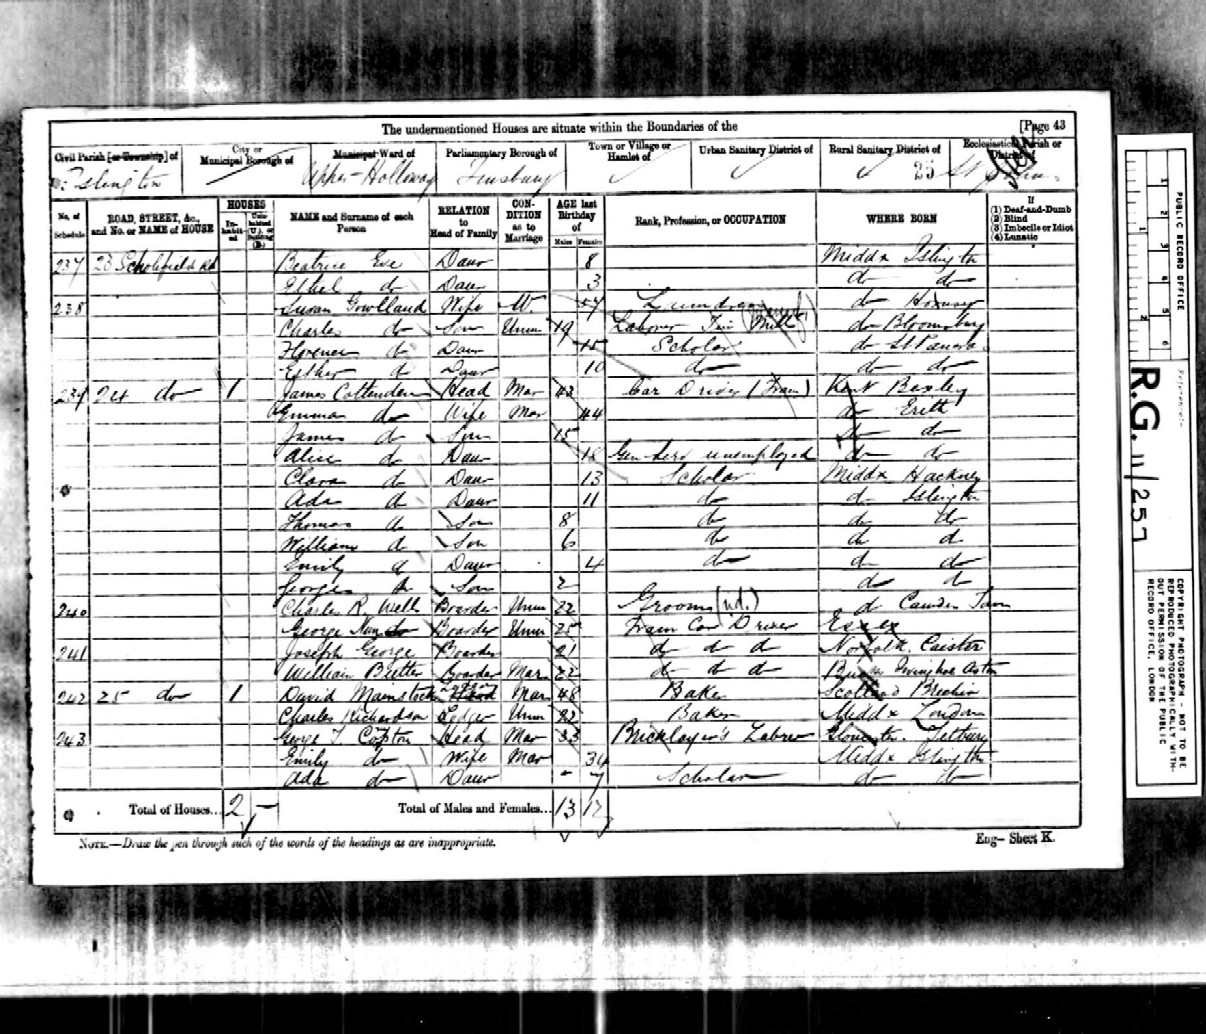 The undermentioned Houses are situate within the Boundaries of the [Page 43
Civil Parish [or Township] of City or Municipal Borough of Municipal Ward of Parliamentary Borough of Town or Village or Hamlet of Urban Sanitary District of Rural Sanitary District of Ecclesiastical Parish or District of
Islington Upper Holloway Finsbury 25 St Johns
No. of Schedule ROAD, STREET, &c., and No. or NAME of HOUSE HOUSES Inhabited Uninhabited (U.), or Building (B.) NAME and Surname of each Person RELATION to Head of Family CONDITION as to Marriage AGE last Birthday of Males Females Rank, Profession, or OCCUPATION WHERE BORN If (1) Deaf-and-Dumb (2) Blind (3) Imbecile or Idiot (4) Lunatic
237 23 Scholefield Rd Beatrice Eve Daur 8 Middx Islington
Ethel do Daur 3 do do
238 Susan Gowlland Wife W. 57 Laundress do Hornsey
Charles do Son Unm 19 Labourer Mill do Bloomsbury
Florence do Daur 15 Scholar do St Pancras
Esther do Daur 10 do do do
239 24 do 1 James Cottenden Head Mar 43 Car Driver (Tram) Kent Bexley
Emma do Wife Mar 44 do Erith
James do Son 15 do do
Alice do Daur 18 Gen Serv unemployed do do
Clara do Daur 13 Scholar Middx Hackney
Ada do Daur 11 do do Islington
Thomas do Son 8 do do do
William do Son 6 do do do
Emily do Daur 4 do do do
George do Son 2 do do
240 Charles R. Wells Boarder Unm 22 Groom do Camden Town
George Boarder Unm 25 Tram Car Driver Essex
241 Joseph George Boarder 21 do do do Norfolk, Caister
William Butter Boarder Mar 22 do do do Bucks Ivinghoe Aston
242 25 do 1 David Mainstock Head Mar 48 Baker Scotland Brechin
Charles Richardson Lodger Unm 22 Baker Middx London
243 George T. Copston Head Mar 33 Bricklayer's Labrer Gloucester Tetbury
Emily do Wife Mar 34 Middx Islington
Ada do Daur - 7 Scholar do do
Total of Houses... 2 - Total of Males and Females... 13 12
NOTE.—Draw the pen through such of the words of the headings as are inappropriate. Eng- Sheet K.
PUBLIC RECORD OFFICE
1 2 3 4 5 6
Reference:-
R.G. 11/257
COPYRIGHT PHOTOGRAPH - NOT TO BE REPRODUCED PHOTOGRAPHICALLY WITHOUT PERMISSION OF THE PUBLIC RECORD OFFICE, LONDON